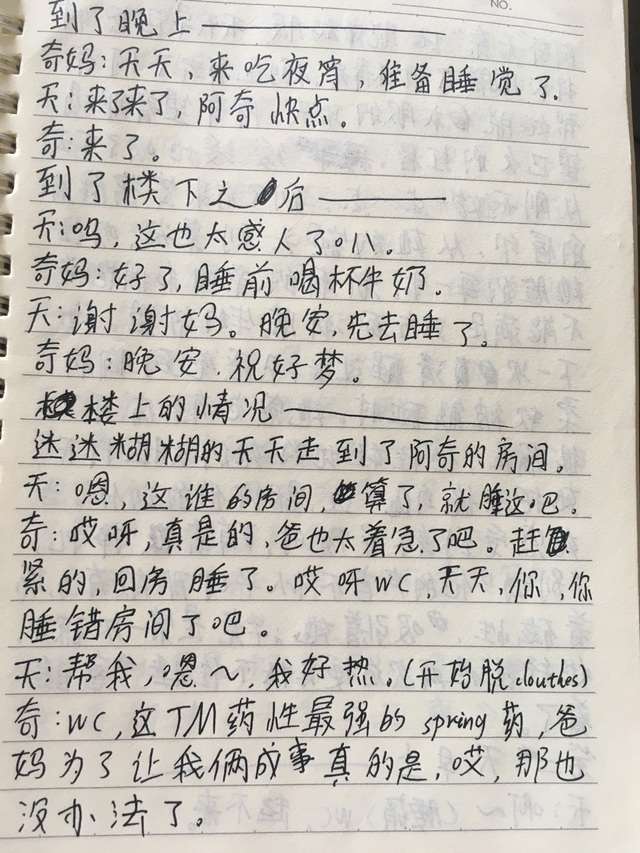 NO.
到了晚上————
奇妈:天天,来吃夜宵,准备睡觉了.
天:来了来了,阿奇快点。
奇:来了。
到了楼下之后————
天:呜,这也太感人了吧。
奇妈:好了,睡前喝杯牛奶。
天:谢谢妈。晚安,先去睡了。
奇妈:晚安.祝好梦。
楼上的情况————
迷迷糊糊的天天走到了阿奇的房间。
天:嗯,这谁的房间,算了,就睡这吧。
奇:哎呀,真是的,爸也太着急了吧。赶
紧的,回房睡了。哎呀WC,天天,你,你
睡错房间了吧。
天:帮我,嗯~,我好热。(开始脱clouthes)
奇:WC,这TM药性最强的spring药,爸
妈为了让我俩成事真的是,哎,那也
没办法了。